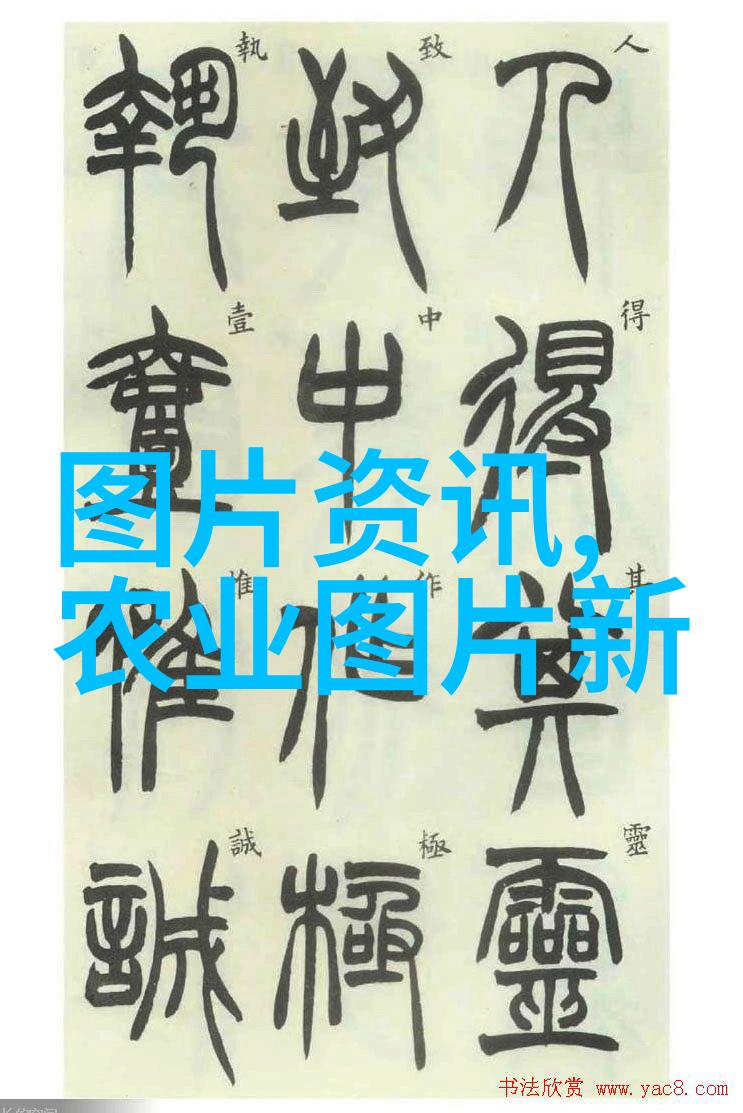 人得其靈
人得其靈
致中作極
致中作極
執壹惟誠
執壹惟誠
图片资讯,
农业图片新
书法欣赏 www.yac8.com